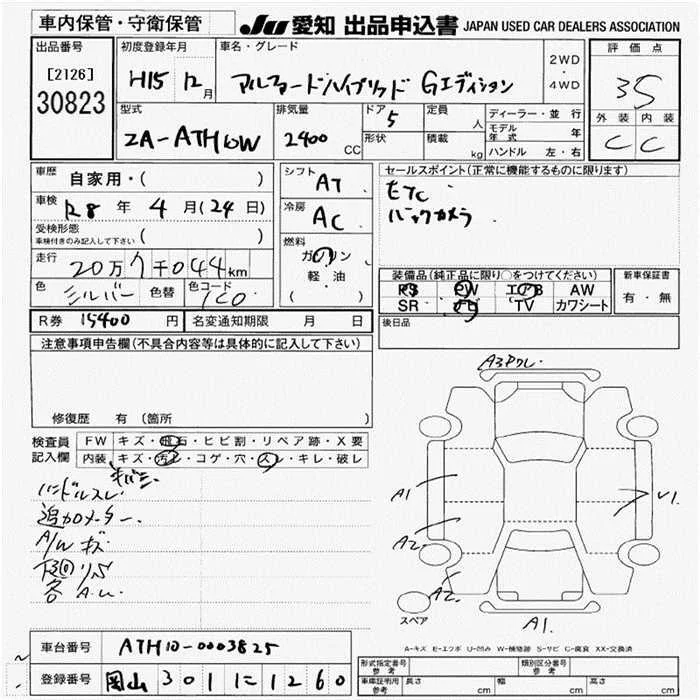 車内保管・守衛保管
JU 愛知 出品申込書 JAPAN USED CAR DEALERS ASSOCIATION
出品番号
[2126]
30823
初度登録年月
H15 12月
車名・グレード
アルファードハイブリッド Gエディション
2WD
・
4WD
評価点
35
外装 内装
C C
型式
ZA-ATH10W
排気量
2400 CC
ドア 5
形状
定員 人
積載 kg
ディーラー・並行
モデル年式 年
ハンドル 左・右
車歴 自家用・( )
車検 R8 年 4 月(24 日)
受検形態
車検付きのみ記入して下さい ( )
走行 20万7千044km
色 シルバー 色替 色コード 1C0
シフト AT
冷房 AC
燃料
ガソリン
軽・油
( )
セールスポイント(正常に機能するものに限ります)
ETC
バックカメラ
装備品(純正品に限り○をつけてください)
PS PW エアB AW
SR ナビ TV カワシート
新車保証書
有・無
R券 15400 円 名変通知期限 月 日
後日品
注意事項申告欄(不具合内容等は具体的に記入して下さい)
修復歴 有(箇所 )
検査員
記入欄
FW キズ・飛石・ヒビ割・リペア跡・X要
内装 キズ・汚レ・コゲ・穴・スレ・キレ・破レ
ハンドルスレ
追加メーター
A/W キズ
A3
A1
A2
A2
A1
スペア
A-キズ E-エクボ U-凹み W-補修跡 S-サビ C-腐食 XX-交換済
車台番号 ATH10-0003825
登録番号 岡山 301 に 1260
形式指定番号
参考
類別区分番号
参考
車庫証明用
参考
長さ cm 幅 cm 高さ cm